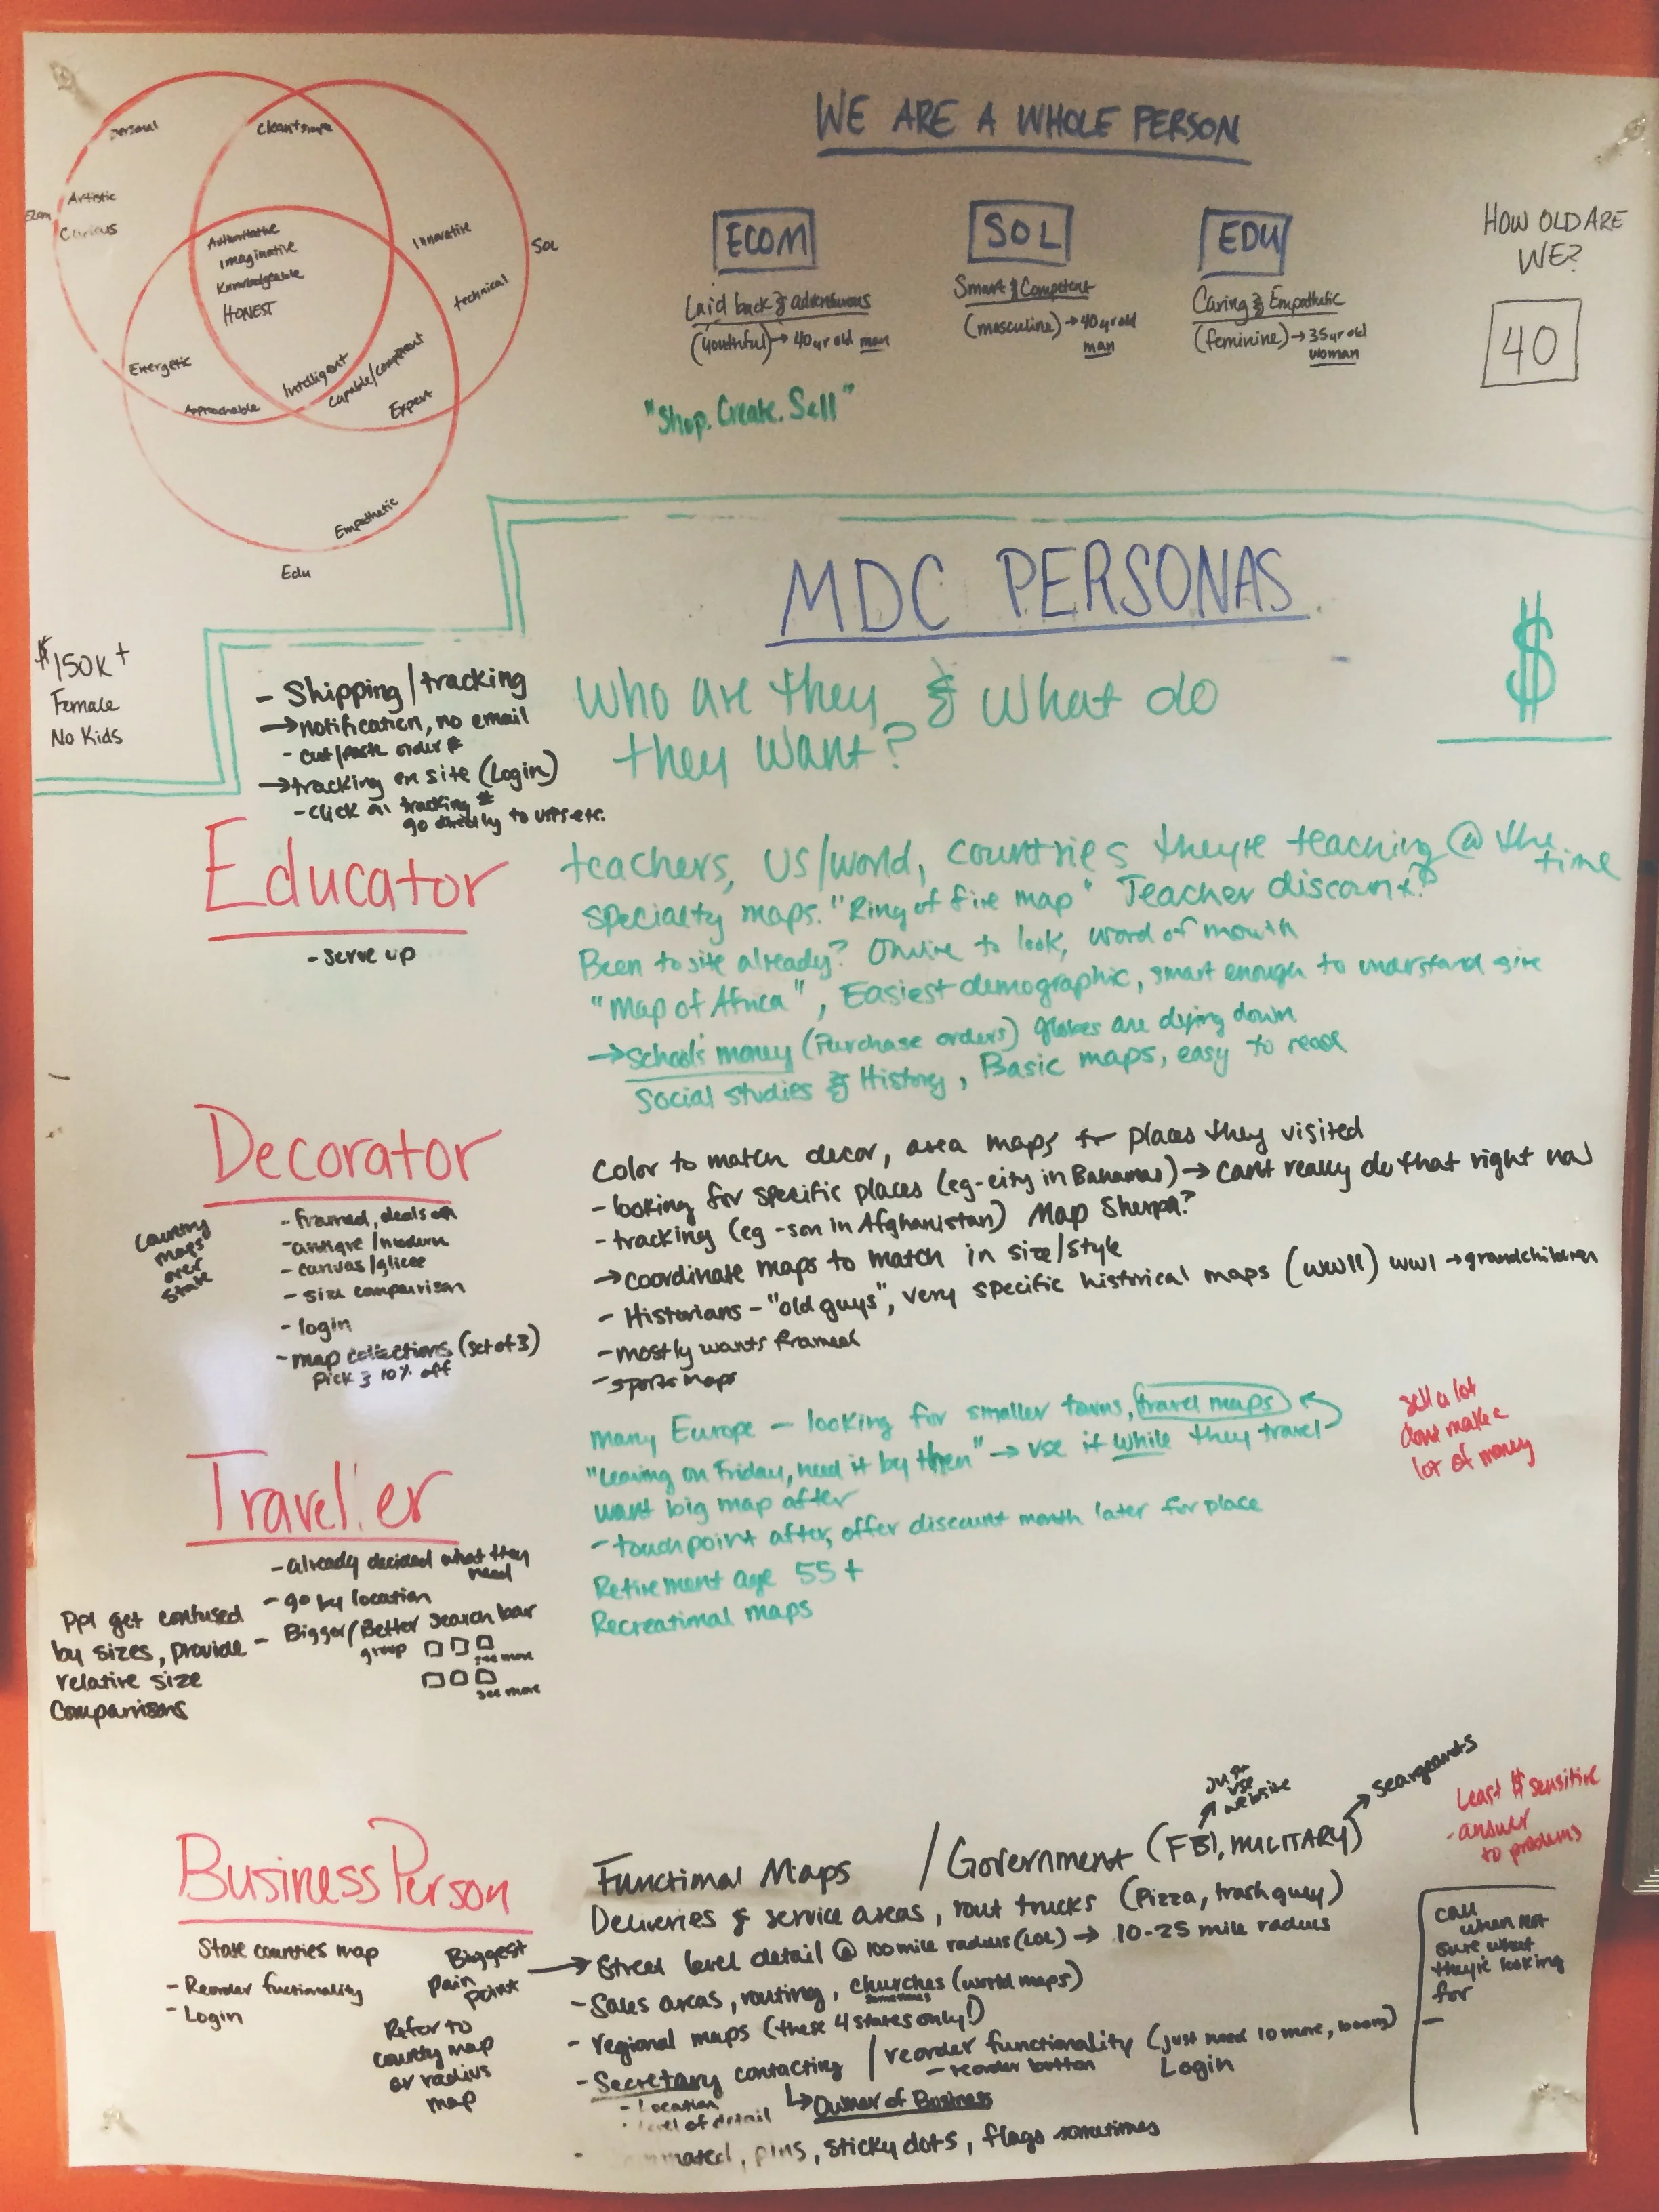 personal
Artistic
Ecom
Curious
Authoritative
Imaginative
Knowledgeable
HONEST
Innovative
Sol
technical
Energetic
Intelligent
Capable/competent
Approachable
Expert
Empathetic
Edu
WE ARE A WHOLE PERSON
ECOM
Laid back & adventurous
(youthful)→ 40 yr old man
SOL
Smart & Competent
(masculine)→ 40 yr old
man
EDU
Caring & Empathetic
(feminine)→ 35 yr old
woman
HOW OLD ARE
WE?
40
"Shop. Create. Sell"
MDC PERSONAS
$
Who are they & What do
they want?
$150K+
Female
No Kids
- Shipping/tracking
→notification, no email
- cut/paste order #
→tracking on site (Login)
- click on tracking #
go directly to UPS etc.
Educator
- serve up
teachers, US/world, countries they're teaching @ the
time
specialty maps. "Ring of fire map" Teacher discount?
Been to site already? Online to look, word of mouth
"Map of Africa", Easiest demographic, smart enough to understand site
→School's money (Purchase orders) globes are dying down
Social studies & History, Basic maps, easy to read
Decorator
Country
maps
over
state
- framed, deals on
- antique/modern
- canvas/glicee
- size comparison
- login
- map collections (set of 3)
Pick 3 10% off
Color to match decor, area maps for places they visited
- looking for specific places (eg-city in Bahamas)→ can't really do that right now
- tracking (eg-son in Afghanistan) Map Sherpa?
→coordinate maps to match in size/style
- Historians - "old guys", very specific historical maps (WWII) WWI →grandchildren
- mostly wants framed
- sports maps
Traveler
many Europe - looking for smaller towns, travel maps
"Leaving on Friday, need it by then" → use it while they travel
want big map after
- touchpoint after, offer discount month later for place
Retirement age 55+
Recreational maps
sell a lot
dont make a
lot of money
- already decided what they
need
- go by location
- Bigger/Better search bar
group
see more
see more
Ppl get confused
by sizes, provide
relative size
comparrisons
Business Person
Functional Maps / Government (FBI, MILITARY)
just
use
website
seargeants
Least $ sensitive
- answer
to problems
Deliveries & service areas, rout trucks (Pizza, trash guy)
→ Street level detail @ 100 mile radius (LOL) → 10-25 mile radius
- Sales areas, routing, churches (world maps)
sometimes
- regional maps (these 4 states only!)
- Secretary contacting / reorder functionality (just need 10 more, boom)
- reorder button
Login
- Location
level of detail
↳Owner of Business
pins, sticky dots, flags sometimes
State counties map
- Reorder fuctionality
- Login
Biggest
pain
point
Refer to
county map
or radius
map
call
when not
sure what
they're looking
for